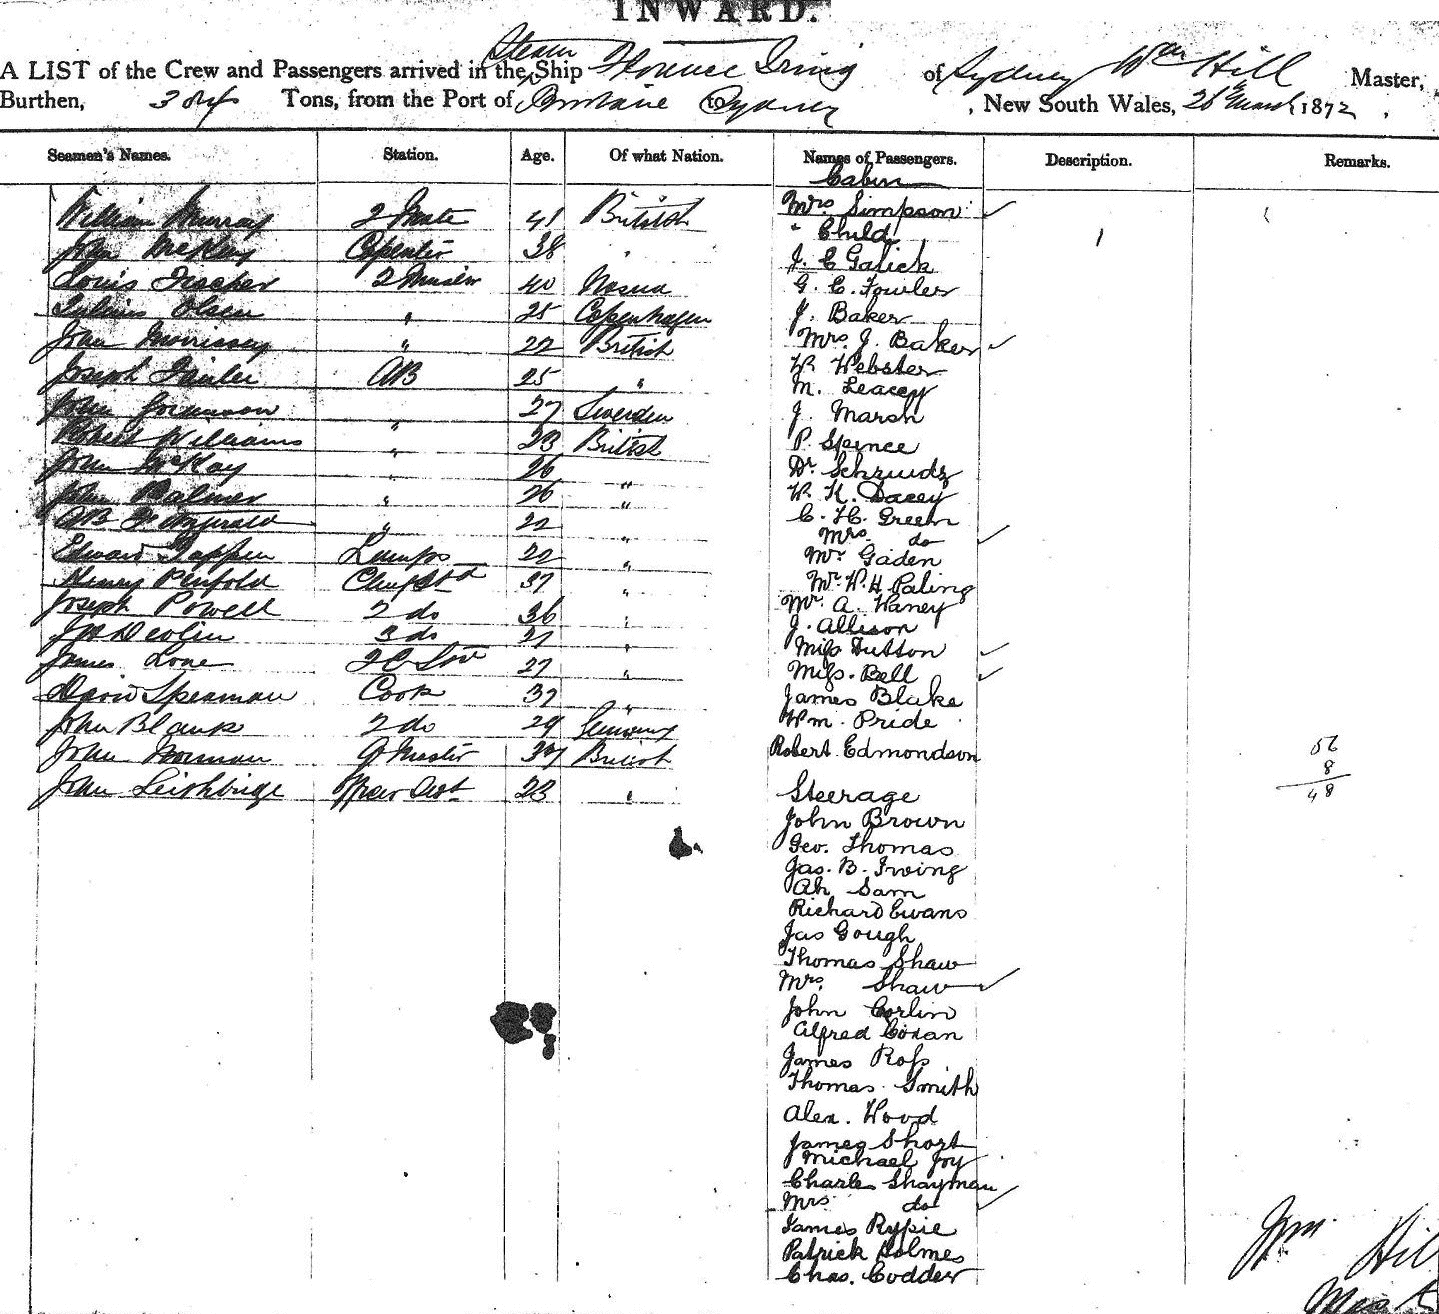 INWARD.
Steam
A LIST of the Crew and Passengers arrived in the Ship Florence Irving of Sydney Wm Hill Master,
Burthen, Tons, from the Port of Brisbane to Sydney, New South Wales, 26 March 1872.
Seamen's Names. Station. Age. Of what Nation. Names of Passengers. Description. Remarks.
Cabin
William Murray 2 Mate 41 British Mrs Simpson
" Child 1
John McKay Carpenter 38 " J. C Galick
Louis Fischer 40 G. C. Fowler
Olsen " 25 Copenhagen J. Baker
John Morrissey " 22 British Mrs. J. Baker
W. Webster
Joseph AB 25 " M. Leacey
John " 27 Sweden J. Marsh
Robert Williams " 23 British P. Spence
John McKay " 26 " Dr.
John Palmer " 26 " W. K. Dacey
" 22 " C. H. Green
Mrs do
Edward Tappen Lamps 22 " Mr Gaden
Henry Penfold Chief Std 37 " Mr W. H. Paling
Joseph Powell 2 do 36 " Mr. A. Haney
J. Allison
Jas Devlin 3 do 27 " Miss Hutton
James Lone 27 " Miss. Bell
David Spearman Cook 37 " James Blake
John Blank 2 do 29 Germany Wm. Pride
John Norman British Robert Edmondson
56
8
48
John Leithbrige 23 " Steerage
John Brown
Geo. Thomas
Jas. B. Irving
Ah Sam
Richard Evans
Jas Gough
Thomas Shaw
Mrs. Shaw
John Corlin
Alfred Cowan
James Ross
Thomas. Smith
Alex. Wood
James Short
Michael Joy
Charles Shayman
Mrs do
James Rypie
Patrick Holmes
Chas. Codder
Wm Hill